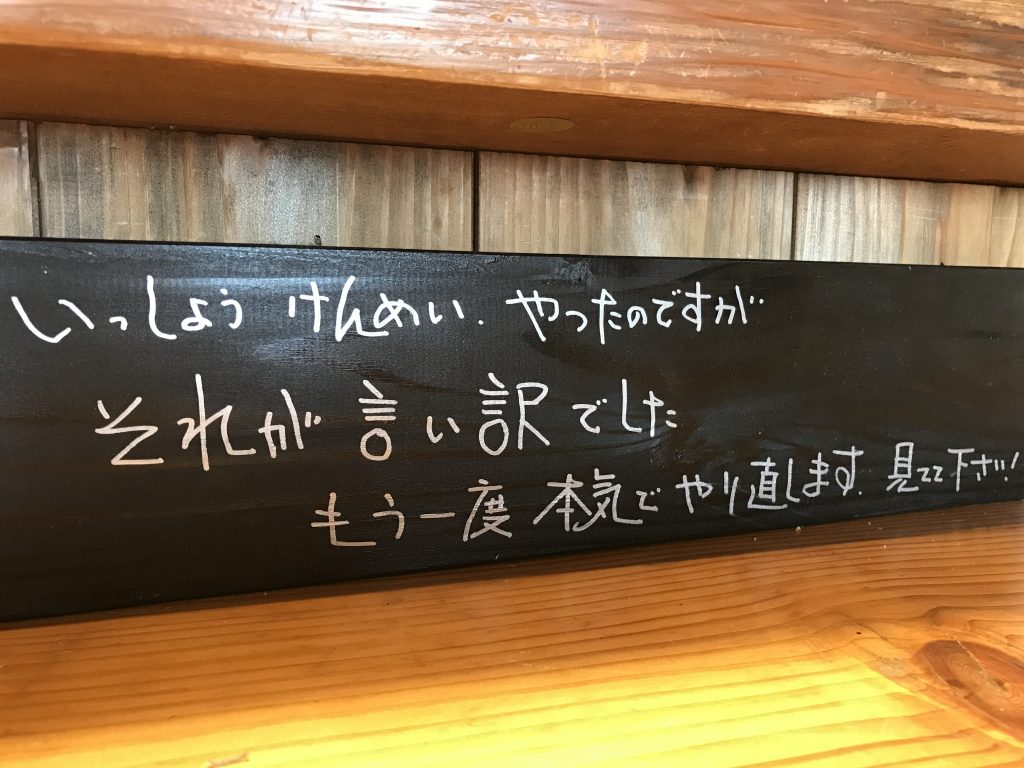 いっしょうけんめい.やったのですが
それが言い訳でした
もう一度本気でやり直します.見てて下さい!